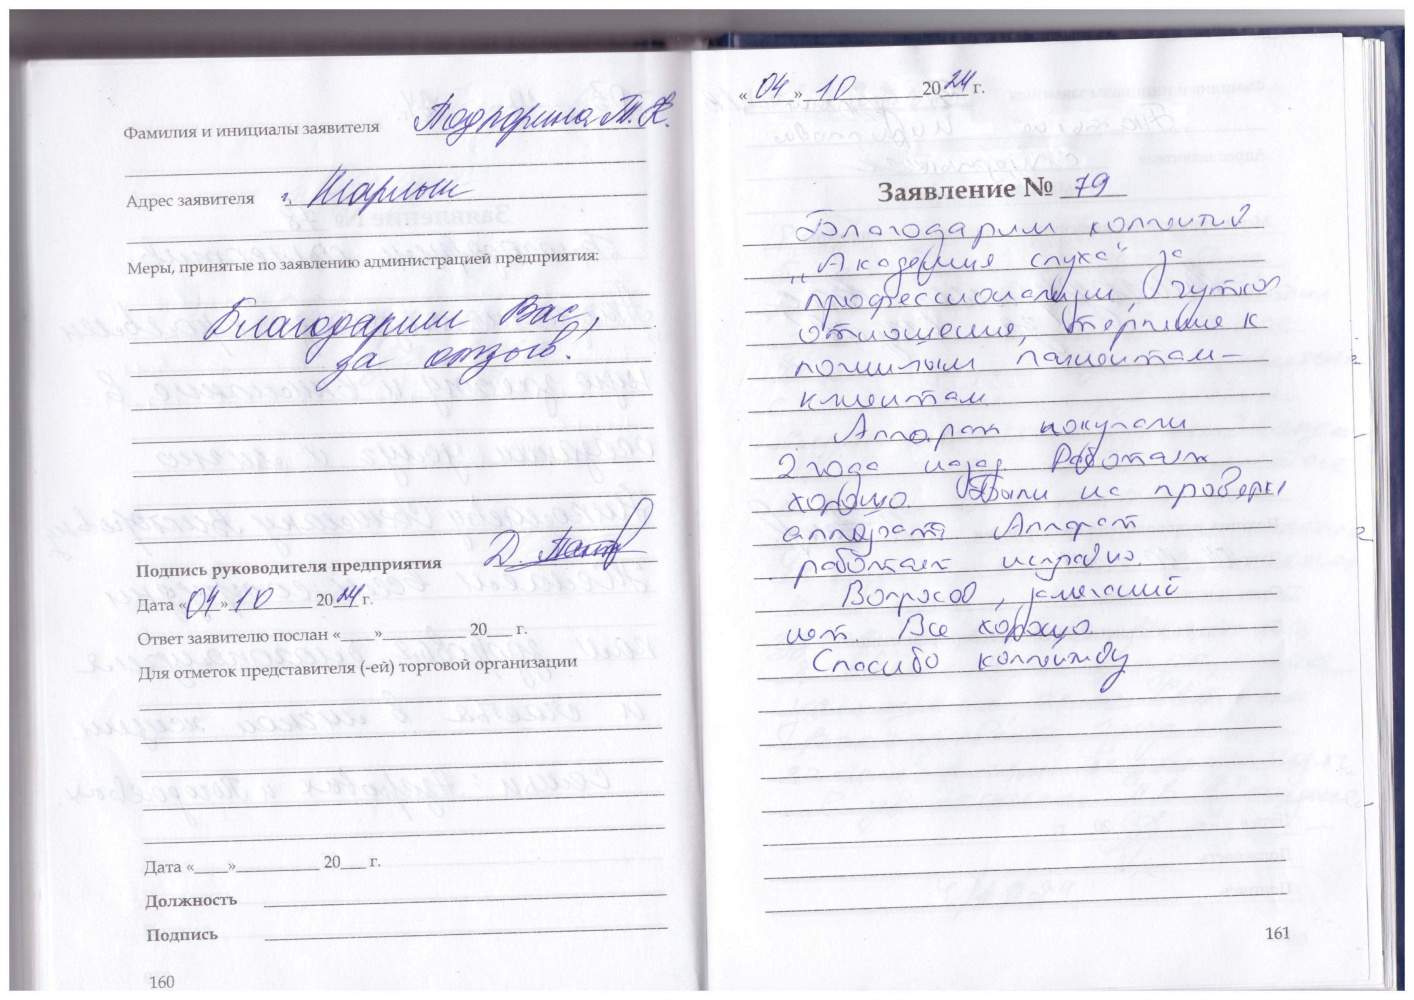 Фамилия и инициалы заявителя Подпорина Т. К.
Адрес заявителя г. Шарлык
Меры, принятые по заявлению администрацией предприятия:
Благодарим Вас
за отзыв!
Подпись руководителя предприятия
Дата «04» 10 2024 г.
Ответ заявителю послан «___»__________ 20___ г.
Для отметок представителя (-ей) торговой организации
Дата «___»__________ 20___ г.
Должность
Подпись
160
«04» 10 2024 г.
Заявление № 79
Благодарим коллектив
"Академия слуха" за
профессионализм, чуткое
отношение, терпение к
пожилым пациентам-
клиентам.
Аппарат покупали
2 года назад Работает
хорошо. Были на проверке
аппарата Аппарат
работает исправно.
Вопросов,
нет. Все хорошо.
Спасибо коллективу
161